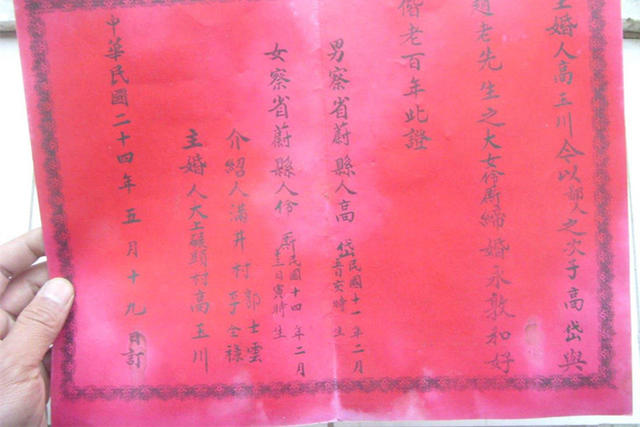 主婚人高玉川今以鄙人之次子高岱與
趙老先生之大女伶斯締婚永敦和好
偕老百年此證
男察省蔚縣人高岱
民國十一年二月
亥時生
女察省蔚縣人伶斯
民國十四年二月
日寅時生
介紹人滿井村郭士雲
李全祿
主婚人大工碾頭村高玉川
中華民國二十四年五月十九日訂